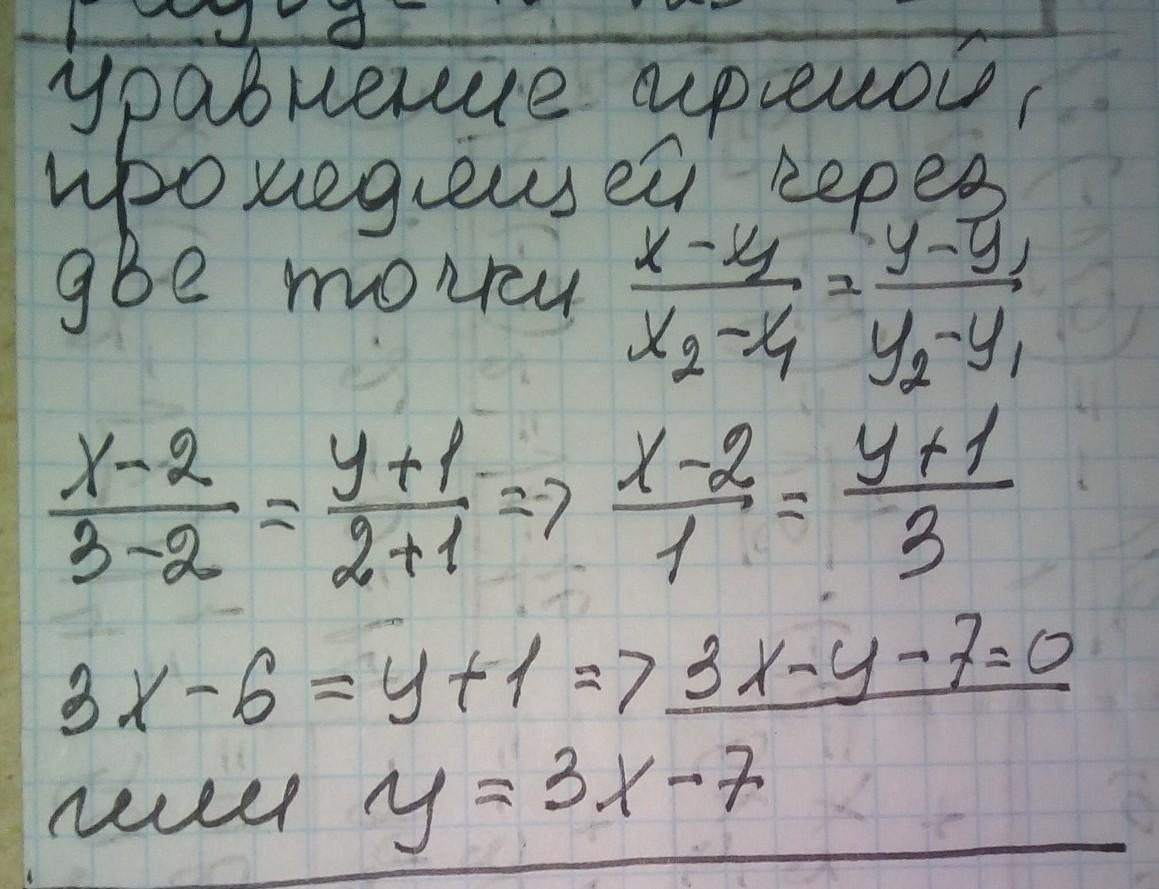 уравнение прямой,
проходящей через
две точки \frac{x-x_1}{x_2-x_1} = \frac{y-y_1}{y_2-y_1}
\frac{x-2}{3-2} = \frac{y+1}{2+1} => \frac{x-2}{1} = \frac{y+1}{3}
3x-6=y+1 => 3x-y-7=0
или y=3x-7